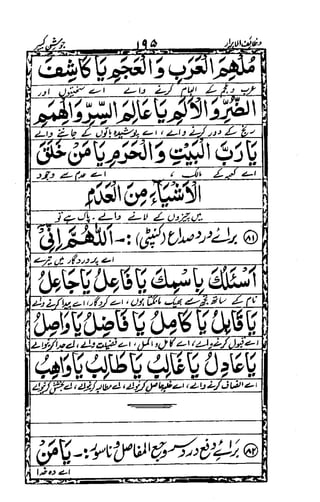 وظائف الابرار ۱۹۵ جوشن کبیر
مُلْهِمَ الْعَرَبِ وَالْعَجَمِ يَا كَاشِفَ
عرب و عجم کے الہام کرنے والے اے سختیوں اور
الضُّرِّ وَالْاَلَمِ يَا عَالِمَ السِّرِّ وَالْهِمَمِ
رنج کے دور کرنے والے، اے پوشیدہ باتوں کے جاننے والے
يَا رَبَّ الْبَيْتِ وَالْحَرَمِ يَا مَنْ خَلَقَ
اے کعبہ کے مالک، اے عدم سے وجود
الْاَشْيَاءَ مِنَ الْعَدَمِ
میں چیزوں کے لانے والے۔ پاک ہے تو
۸۱ برائے درد صداع (کنپٹی):۔ اَللّٰهُمَّ اِنِّيْ
اے پروردگار میں تیرے
اَسْئَلُكَ بِاسْمِكَ يَا فَاعِلُ يَا جَاعِلُ
نام کے ساتھ تجھ سے بھیک مانگتا ہوں، اے کردگار، اے پیدا کرنے والے
يَا قَابِلُ يَا كَامِلُ يَا فَاضِلُ يَا وَاصِلُ
اے قبول کرنے والے، اے کامل و اکمل، اے فضیلت والے، اے
يَا عَادِلُ يَا غَالِبُ يَا طَالِبُ يَا وَاهِبُ
اے انصاف کرنے والے، اے غلبہ حاصل کرنے والے، اے مطالبہ کرنے والے، اے بخشش کرنے والے
۸۲ برائے دفع درد سر وجع المفاصل و ناسور:۔ يَا مَنْ
اے وہ خدا